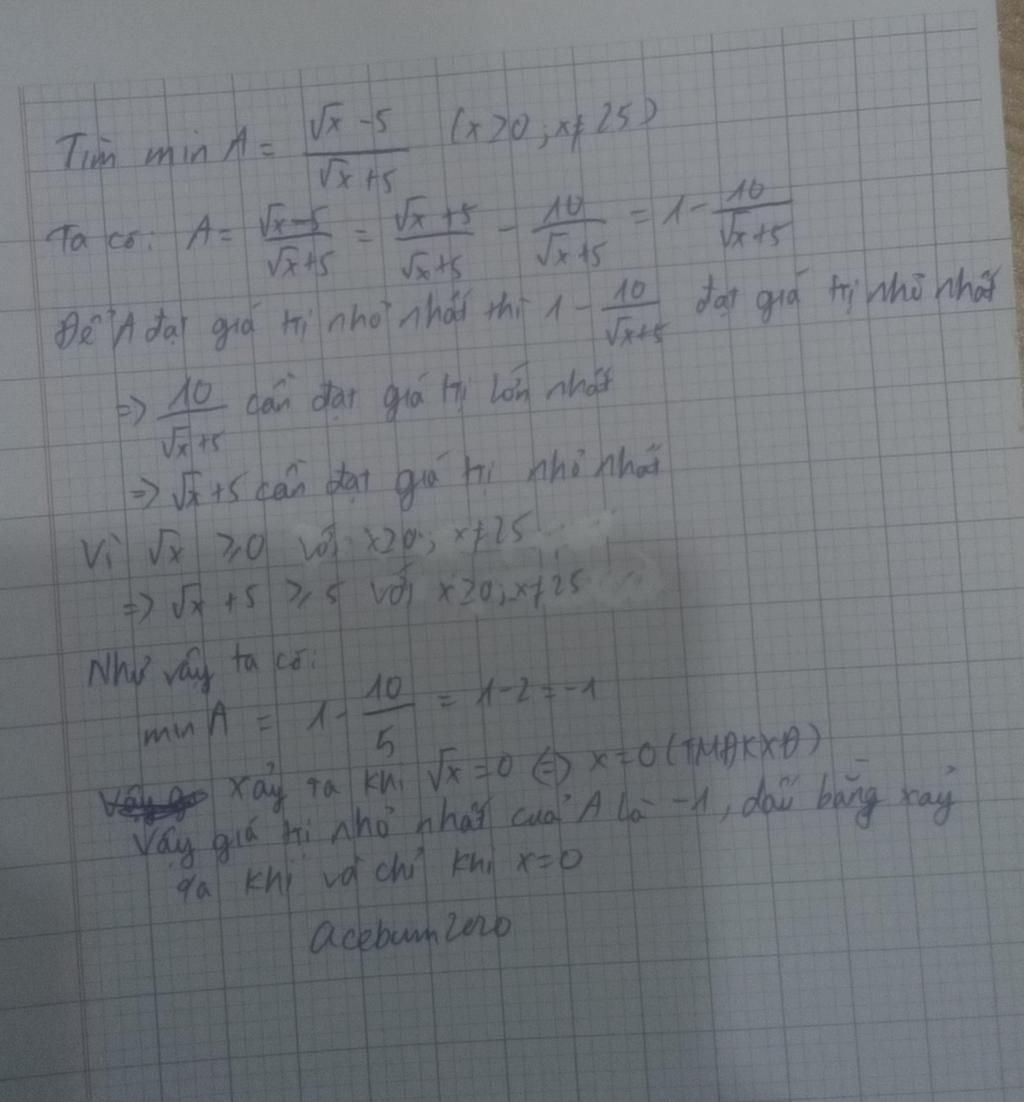 Tìm min A = \frac{\sqrt{x} - 5}{\sqrt{x} + 5} (x ≥ 0, x ≠ 25)
Ta có: A = \frac{\sqrt{x} - 5}{\sqrt{x} + 5} = \frac{\sqrt{x} + 5}{\sqrt{x} + 5} - \frac{10}{\sqrt{x} + 5} = 1 - \frac{10}{\sqrt{x} + 5}
Để A đạt giá trị nhỏ nhất thì 1 - \frac{10}{\sqrt{x} + 5} đạt giá trị nhỏ nhất
=> \frac{10}{\sqrt{x} + 5} cần đạt giá trị lớn nhất
=> \sqrt{x} + 5 cần đạt giá trị nhỏ nhất
Vì \sqrt{x} ≥ 0 với x ≥ 0; x ≠ 25
=> \sqrt{x} + 5 ≥ 5 với x ≥ 0; x ≠ 25
Như vậy ta có:
min A = 1 - \frac{10}{5} = 1 - 2 = -1
xảy ra khi \sqrt{x} = 0 <=> x = 0 (TMĐKXĐ)
Vậy giá trị nhỏ nhất của A là -1, dấu bằng xảy
ra khi và chỉ khi x = 0
acebumzero